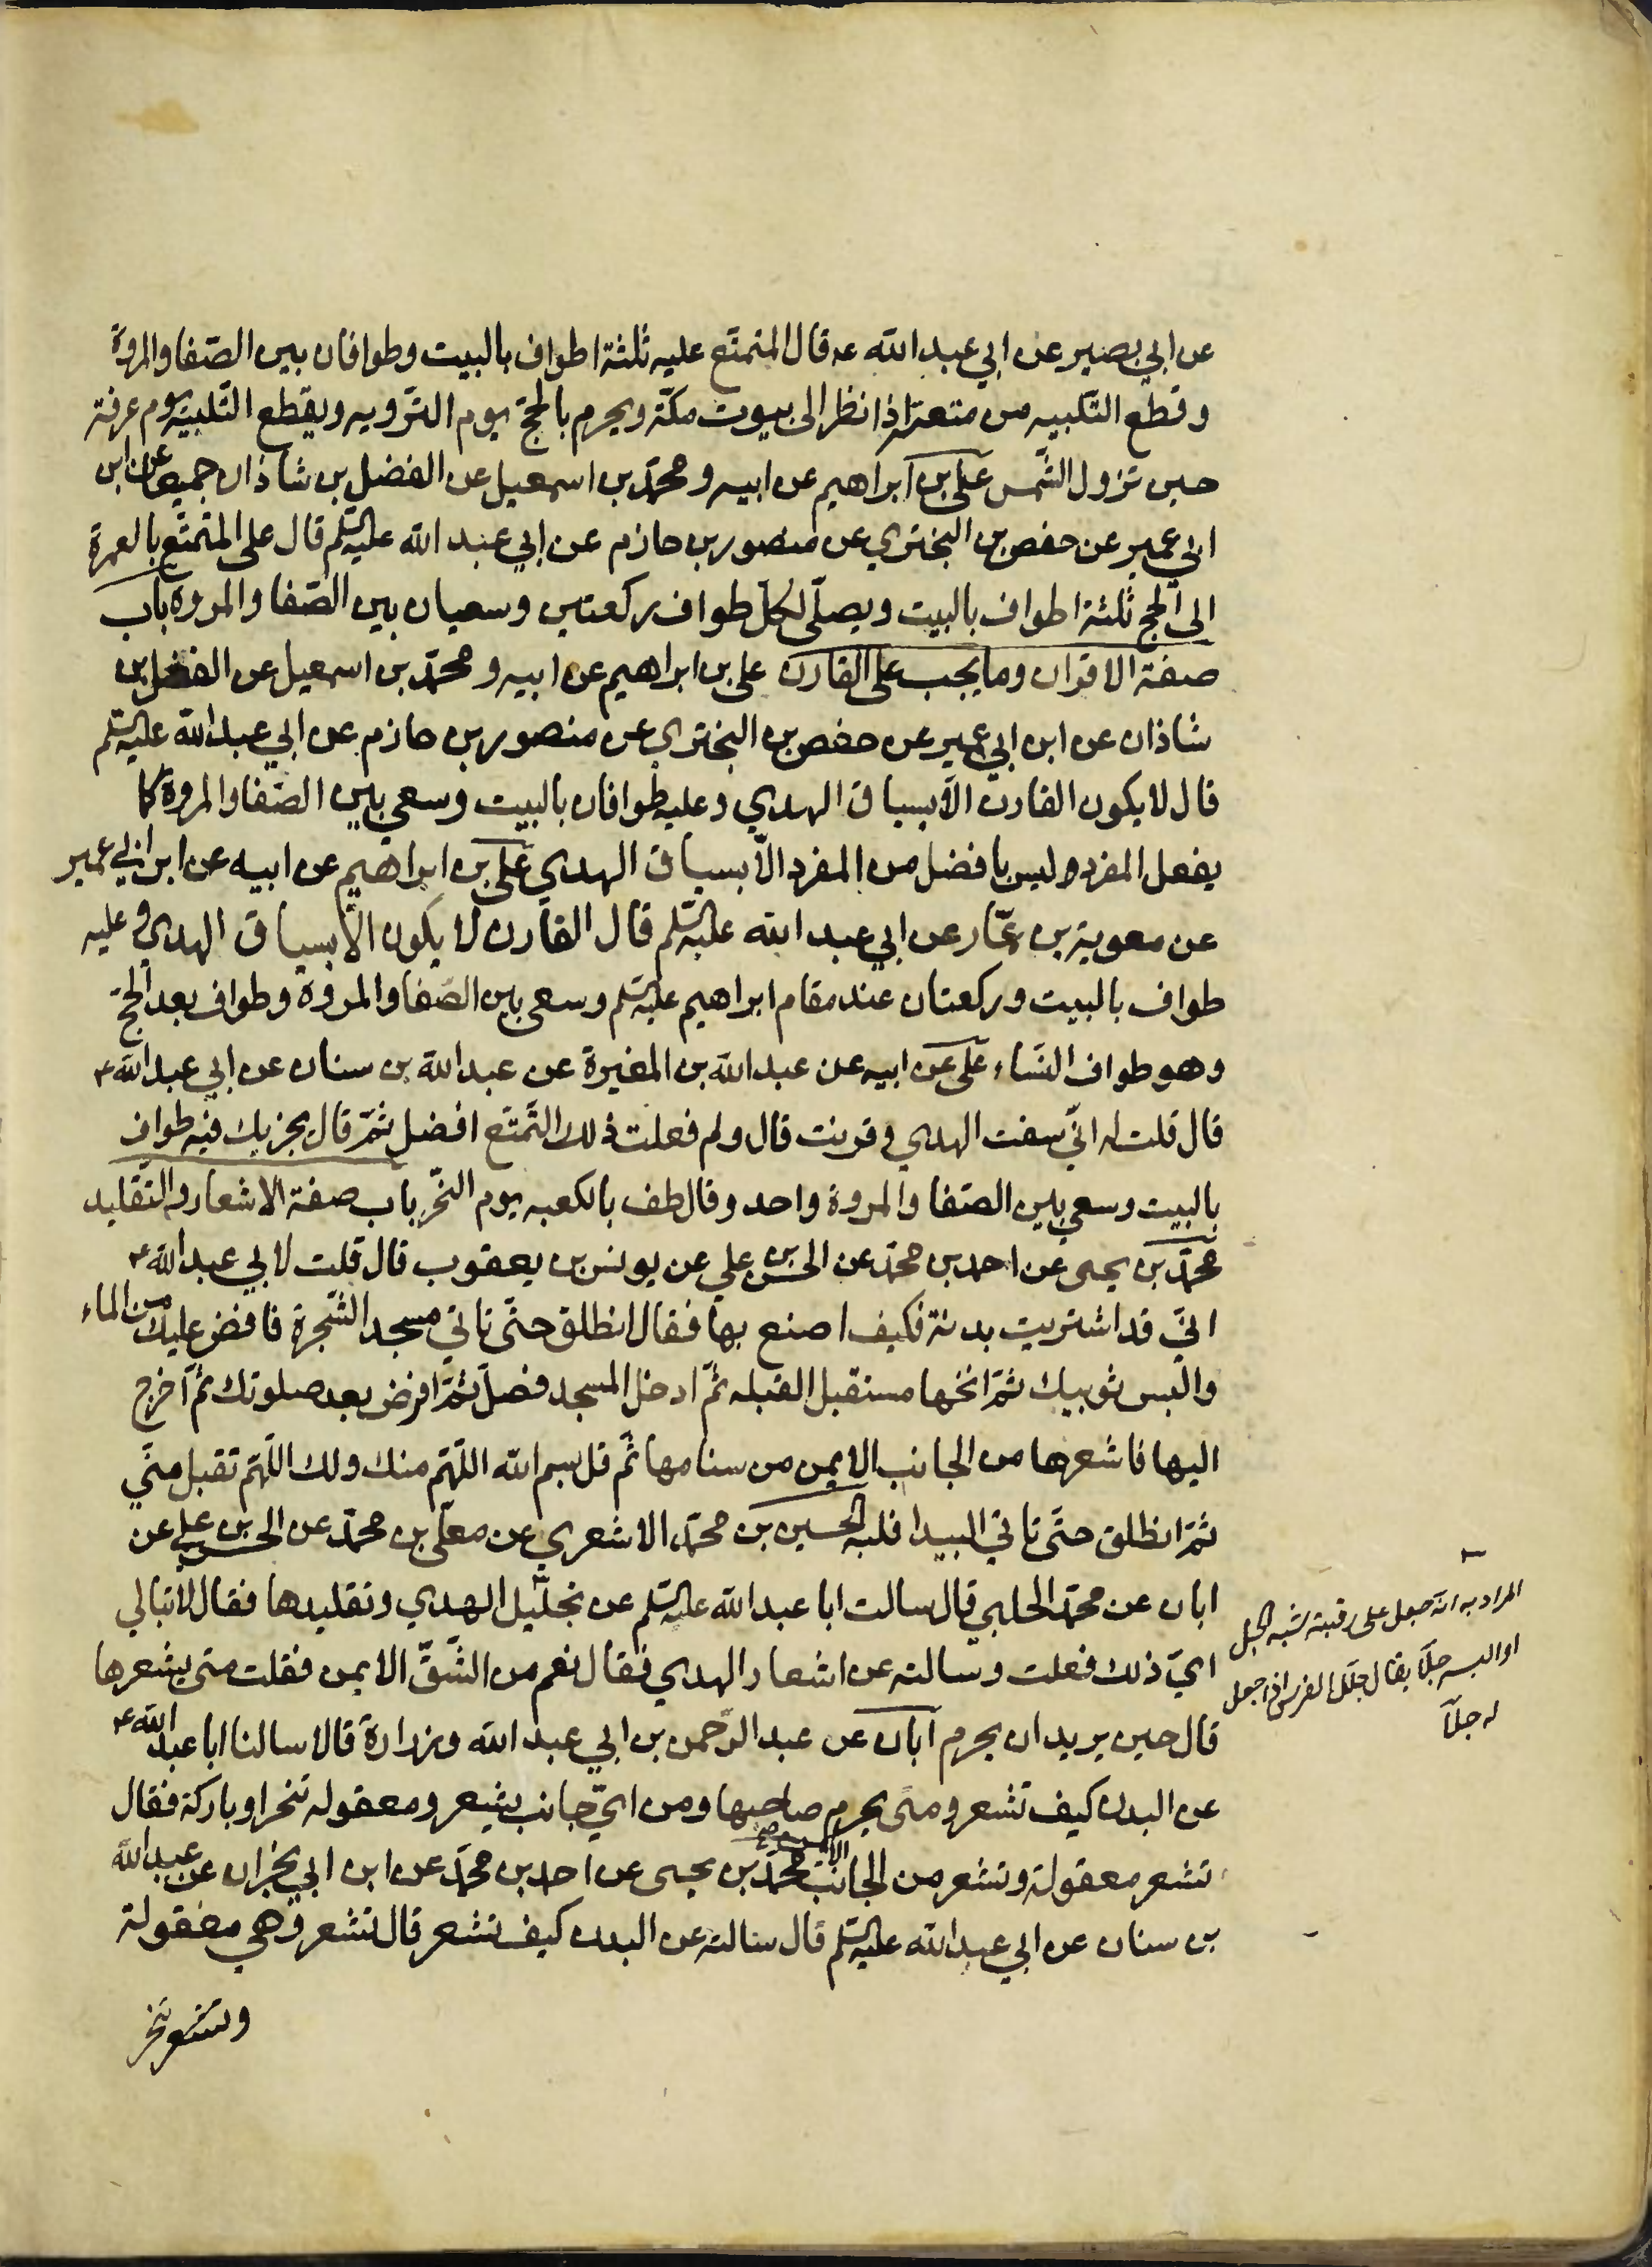 عن ابي بصير عن ابي عبد الله عه قال المتمتع عليه ثلثة اطواف بالبيت وطوافان بين الصّفا والمروة
وقطع التلبيه من متعته اذا نظر الى بيوت مكّة ويحرم بالحج يوم التّرويه ويقطع التّلبيه يوم عرفة
حين تزول الشّمس علي بن ابراهيم عن ابيه ومحمّد بن اسمعيل عن الفضل بن شاذان جميعا عن ابن
ابي عمير عن حفص بن البختري عن منصور بن حازم عن ابي عبد الله عليه السّلم قال على المتمتّع بالعمرة
الى الحج ثلثة اطواف بالبيت ويصلّى لكلّ طواف ركعتين وسعيان بين الصّفا والمروة باب
صفة الاقران وما يجب على القارن علي بن ابراهيم عن ابيه ومحمّد بن اسمعيل عن الفضل بن
شاذان عن ابن ابي عمير عن حفص بن البختري عن منصور بن حازم عن ابي عبد الله عليه السّلم
قال لا يكون القارن الاّ بسياق الهدي وعليه طوافان بالبيت وسعي بين الصّفا والمروة كما
يفعل المفرد وليس بافضل من المفرد الاّ بسياق الهدي علي بن ابراهيم عن ابيه عن ابن ابي عمير
عن معوية بن عمّار عن ابي عبد الله عليه السّلم قال القارن لا يكون الاّ بسياق الهدي وعليه
طواف بالبيت وركعتان عند مقام ابراهيم عليه السّلم وسعي بين الصّفا والمروة وطواف بعد الحجّ
وهو طواف النّساء علي عن ابيه عن عبد الله بن المغيرة عن عبد الله بن سنان عن ابي عبد الله ع
قال قلت له انّي سقت الهدي وقرنت قال ولم فعلت ذلك التّمتّع افضل ثمّ قال يجزيك فيه طواف
بالبيت وسعي بين الصّفا والمروة واحد وقال طف بالكعبه يوم النّحر باب صفة الاشعار والتّقليد
محمّد بن يحيى عن احمد بن محمّد عن الحسن بن علي عن يونس بن يعقوب قال قلت لابي عبد الله ع
انّي قد اشتريت بدنة فكيف اصنع بها فقال انطلق حتّى تاتي مسجد الشّجرة فافض عليك من الماء
والبس ثوبيك ثمّ انخها مستقبل القبله ثمّ ادخل المسجد فصلّ ثمّ افرض بعد صلوتك ثمّ اخرج
اليها فاشعرها من الجانب الايمن من سنامها ثمّ قل بسم الله اللّهمّ منك ولك اللّهمّ تقبل منّي
ثمّ انطلق حتّى تاتي البيدا فلبه الحسين بن محمّد الاشعري عن معلّى بن محمّد عن الحسن بن علي عن
ابان عن محمّد الحلبي قال سالت ابا عبد الله عليه السّلم عن تجليل الهدي وتقليدها فقال لا تبالي
ايّ ذلك فعلت وسالته عن اشعار الهدي فقال نعم من الشّقّ الايمن فقلت متى يشعرها
قال حين يريد ان يحرم ابان عن عبد الرّحمن بن ابي عبد الله وزرارة قالا سالنا ابا عبد الله ع
عن البدن كيف تشعر ومتى يحرم صاحبها ومن ايّ جانب يشعر ومعقوله تنحر او باركة فقال
تشعر معقولة وتشعر من الجانب الايمن محمّد بن يحيى عن احمد بن محمّد عن ابن ابي نجران عن عبد الله
بن سنان عن ابي عبد الله عليه السّلم قال سالته عن البدن كيف تشعر قال تشعر وهي معقولة
وتنحر
المراد به انه جعل على رقبته شبه الحبل
او البسه جلّا يقال جلّل الفرس اذا جعل
له جلّا